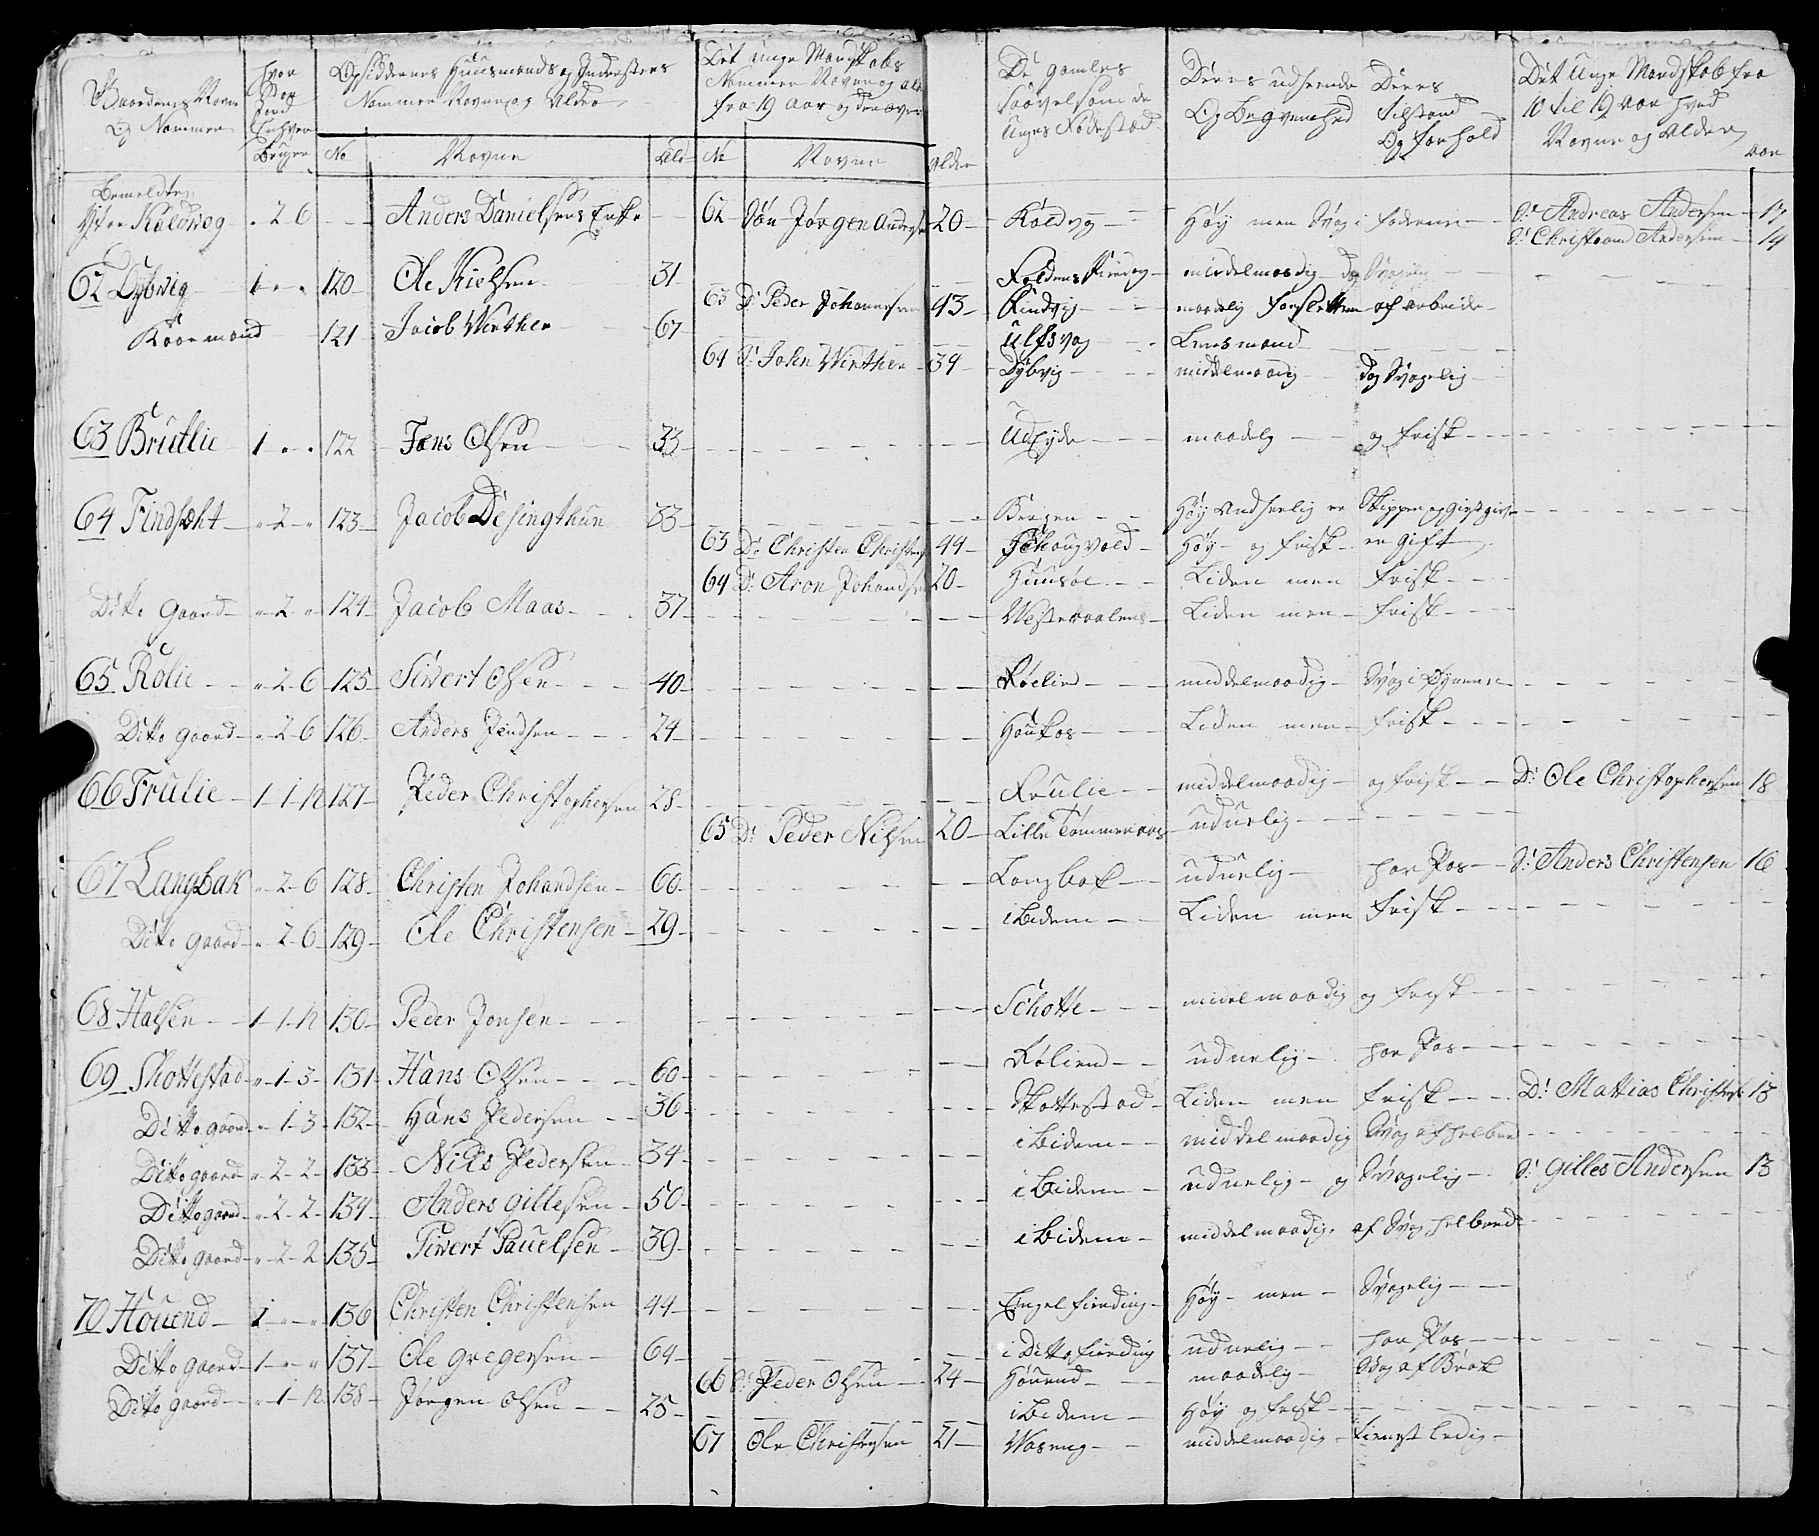 Gaardenes Navne Og Nommer | hvor Stor Jord Enhver Bruger | Opsiddernes Huusmænds og Indersters Nommer Navne og Alder | Det unge Mandskabs Nommer Navne og alder fra 19 Aar og derover | De gamles saavelsom de unges Fødestæd | Deres udseende Og Beqvemhed | Deres Tilstand Og forhold | Det Unge Mandskab fra 10 til 19 Aar hved Navne og Alder
No | Navne | Ald | No | Navne | Alder | aar
Bemeldte
Kaldvog - 2 6 - - Anders Danielsens Enke - 62 Søn Jørgen Anders 20 - Kaldvog - Høy men Svag i - Sn Andreas Andersen - 17
Sn Andersen - 14
62 Dybvig - 1 - - 120 - Ole Nielsen - 31 - middelmaadig og Svagelig
63 D: Peder Johannesen 43 - Rindvig - maadelig af arbeide
Kaarmand 121 - Jacob Wirthen - 67 - Ulfsvog - Lensmand
64 D: John Wirthen - 39 - Dybvig - middelmaadig og Svagelig
63 Brutlie - 1 - - 122 - Jens Olsen - 33 - maadelig - og frisk
64 Findsæht - 2 - 123 - Jacob Desingthun 33 - Bergen - Høy Andseelig er Skipper og giestgiver
63 D: Christen Christens 44 - Høy - og frisk - er gift
64 D: Aron Johands 20 - Liden men frisk
Ditto Gaard - 2 - 124 - Jacob Maas - 37 - Westeraalens - Liden men - frisk
65 Rolie - 2 6 - 125 - Siwert Olsen - 40 - Rølien - middelmaadig - Svag i Øynene
Ditto Gaard - 2 6 126 - Anders Jendsen - 24 - Haukos - Liden men - frisk
66 Frulie - 1 - 1 - 12 127 - Peder Christophersen 28 - Frulie - middelmaadig - og frisk - D: Ole Christophersen 18
65 D: Peder Nilsen 20 - Lille Tommeraas - uduelig
67 Langbak - 2 - 6 128 - Christen Johandsen - 60 - Langbak - uduelig - har Pas - S: Anders Christensen 16
Ditto gaard - 2 - 6 129 - Ole Christensen - 29 - ibidem - Liden men frisk
68 Halsen - 1 - 1 - 12 130 - Peder Jonsen - Schotte - middelmaadig og frisk
69 Skottestad - 1 - 3 - 131 - Hans Olsen - 60 - Rølien - uduelig - har Pas
Ditto gaard - 1 - 3 - 132 - Hans Pedersen - 36 - Skottestad - Liden men frisk - D: Mattias Christens 13
Ditto gaard - 2 - 2 - 133 - Nils Pedersen - 34 - ibidem - middelmaadig Svag af helbred
Ditto gaard - 2 - 2 - 134 - Anders Gillesen - 50 - ibidem - uduelig - og Svagelig - S: Gilles Andersen 13
Ditto gaard - 2 - 2 135 - Siwert Pauelsen - 39 - ibidem - middelmaadig af Svag helbred
70 Houend - 1 - - 136 Christen Christensen 44 - Engelfierding - Høy - men - Svagelig
Ditto gaard - 1 - - 137 - Ole Gregersen - 64 - i Ditto fierding - uduelig - har Pas
66 S: Peder Olsen - 24 - Houend - maadelig - Svag af Brok
Ditto gaard - 1 - 12 138 - Jørgen Olsen - 25 - ibidem - Høy og frisk
67 Ole Christensen 21 - Waseng - middelmaadig - tienest ledig